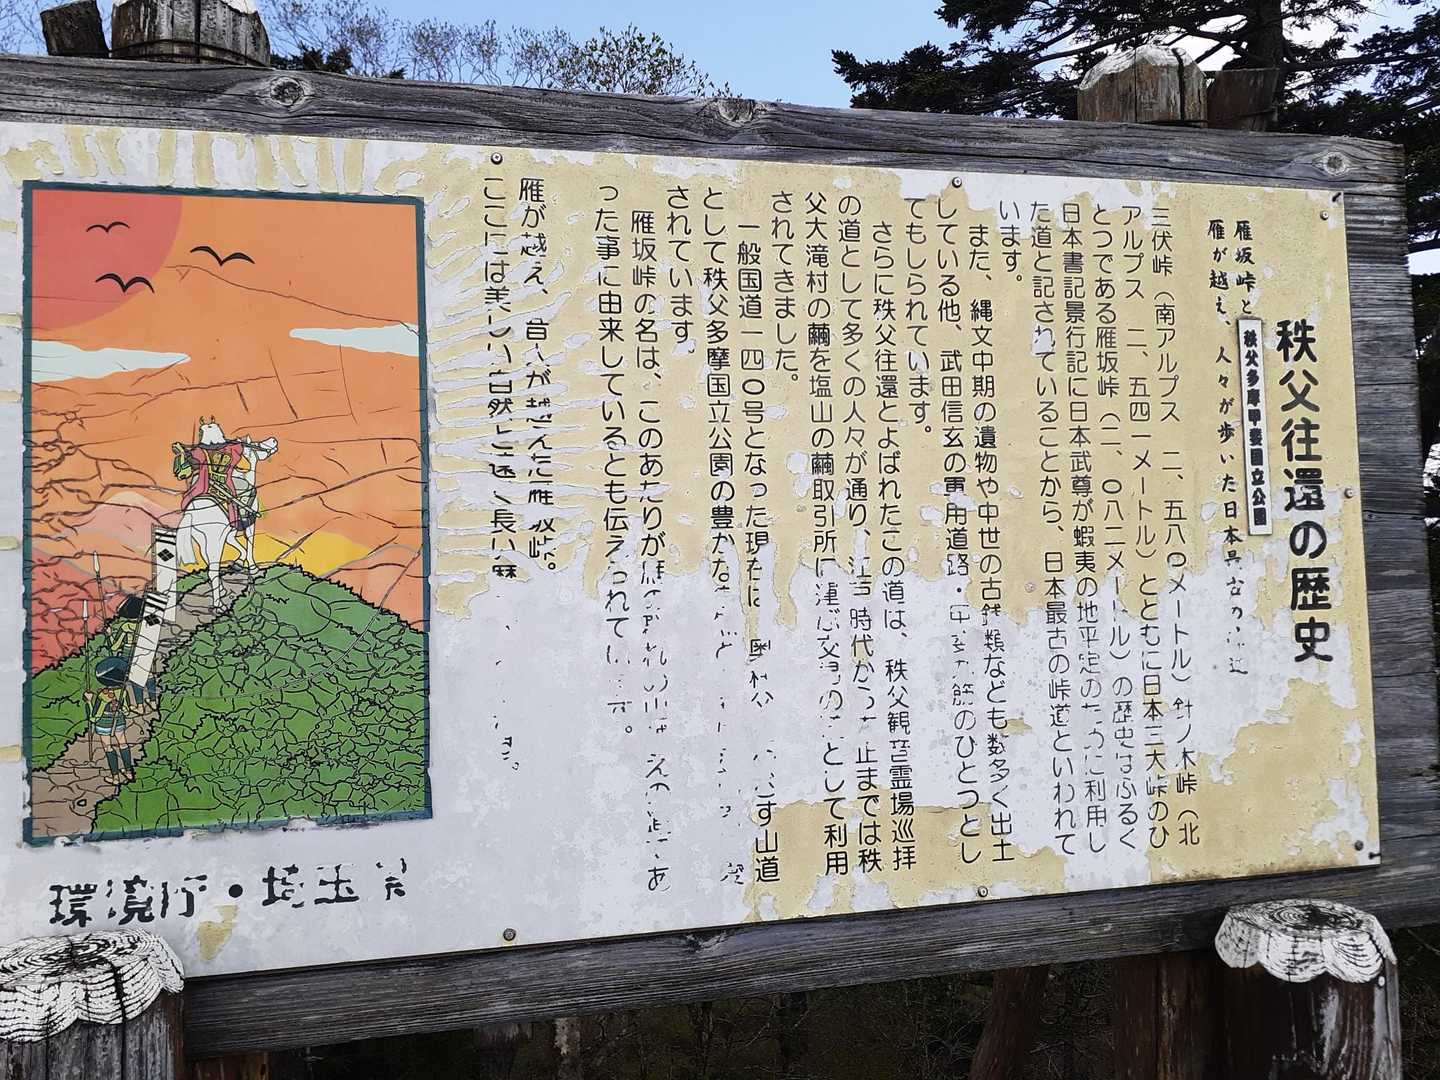 秩父往還の歴史
秩父多摩甲斐国立公園
雁坂峠と
雁が越え、人々が歩いた日本最古の
三伏峠（南アルプス 二、五八〇メートル）針ノ木峠（北
アルプス 二、五四一メートル）とともに日本三大峠のひ
とつである雁坂峠（二、〇八二メートル）の歴史はふるく
日本書記景行記に日本武尊が蝦夷の地平定のために利用し
た道と記されていることから、日本最古の峠道といわれて
います。
また、縄文中期の遺物や中世の古銭類なども数多く出土
している他、武田信玄の軍用道路・のひとつとし
てもしられています。
さらに秩父往還とよばれたこの道は、秩父観音霊場巡拝
の道として多くの人々が通り、江戸時代から 止までは秩
父大滝村の繭を塩山の繭取引所に運ぶ交易の として利用
されてきました。
一般国道一四〇号となった現在は、奥秩父 す山道
として秩父多摩国立公園の豊かな
されています。
雁坂峠の名は、このあたりが雁の あ
った事に由来しているとも伝えられています。
雁が越え、昔人が越えた雁坂峠。
ここには美しい自然と遠く長い歴
環境庁・埼玉